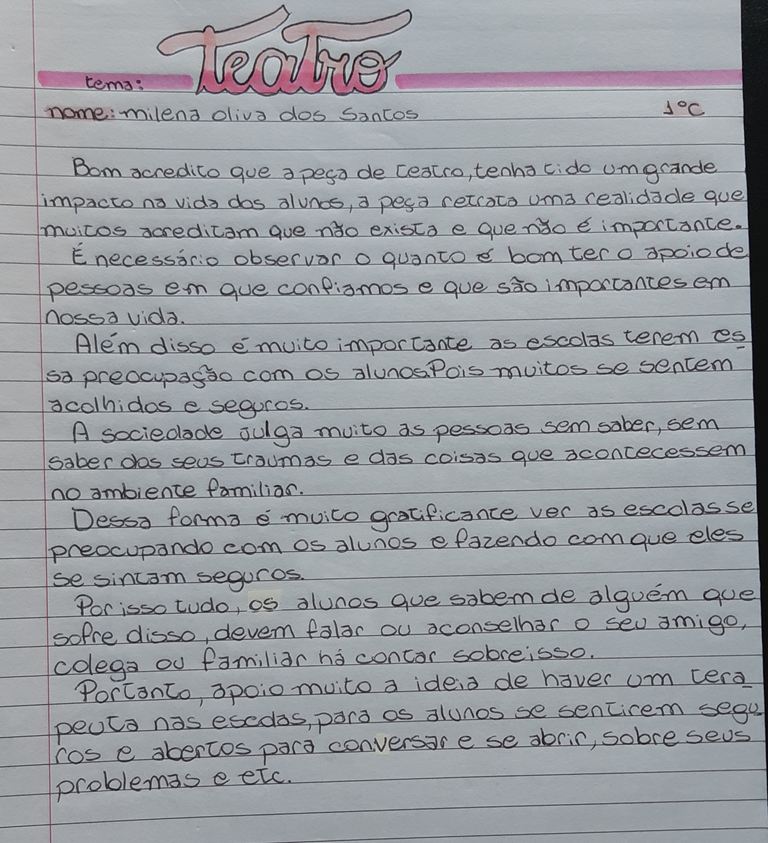 Teatro
tema:
nome: milena oliva dos Santos 1°C
Bom acredito que a peça de teatro, tenha tido um grande
impacto na vida dos alunos, a peça retrata uma realidade que
muitos acreditam que não exista e que não é importante.
É necessário observar o quanto é bom ter o apoio de
pessoas em que confiamos e que são importantes em
nossa vida.
Além disso é muito importante as escolas terem es
sa preocupação com os alunos Pois muitos se sentem
acolhidos e seguros.
A sociedade julga muito as pessoas sem saber, sem
saber dos seus traumas e das coisas que acontecessem
no ambiente familiar.
Dessa forma é muito gratificante ver as escolas se
preocupando com os alunos e fazendo com que eles
se sintam seguros.
Por isso tudo, os alunos que sabem de alguém que
sofre disso, devem falar ou aconselhar o seu amigo,
colega ou familiar há contar sobre isso.
Portanto, apoio muito a ideia de haver um tera
peuta nas escolas, para os alunos se sentirem segu
ros e abertos para conversar e se abrir, sobre seus
problemas e etc.